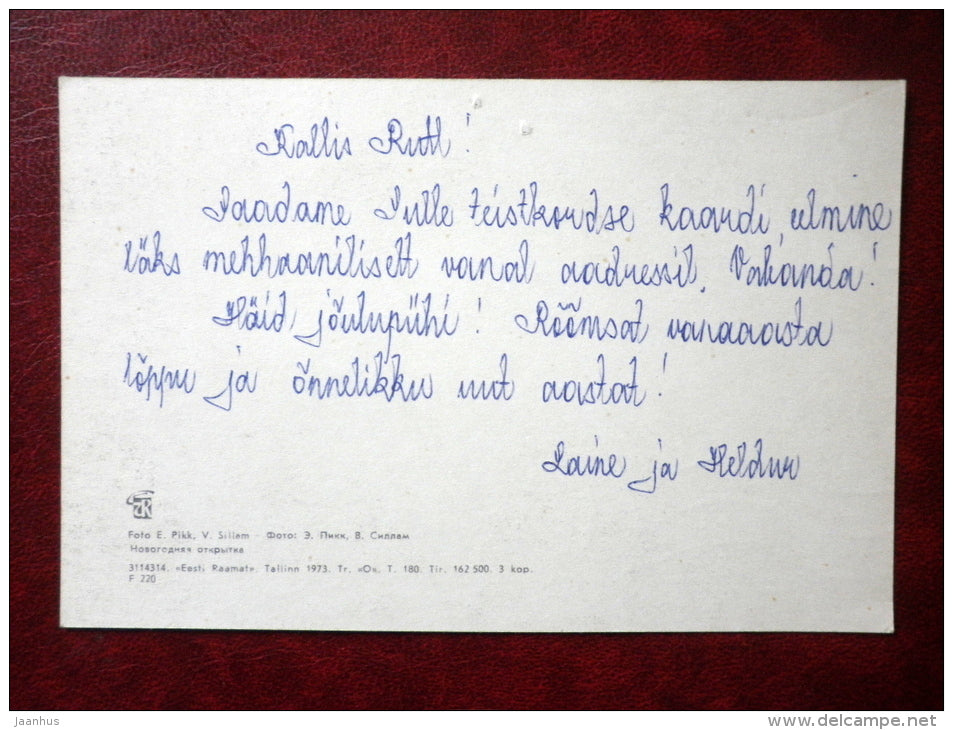 Kallis Ruth!
Saadame Sulle teistkordse kaardi, eelmine
läks mehhaaniliselt vanal aadressil. Vabanda!
Häid jõulupühi! Rõõmsat vanaaasta
lõppu ja õnnelikku uut aastat!
Laine ja Heldur
Foto E. Pikk, V. Sillam Фото: Э. Пикк, В. Силлам
Новогодняя открытка
3114314. «Eesti Raamat», Tallinn 1973. Tr. «O», T. 180. Tir. 162 500. 3 kop.
F 220
jaanhus
www.delcampe.net